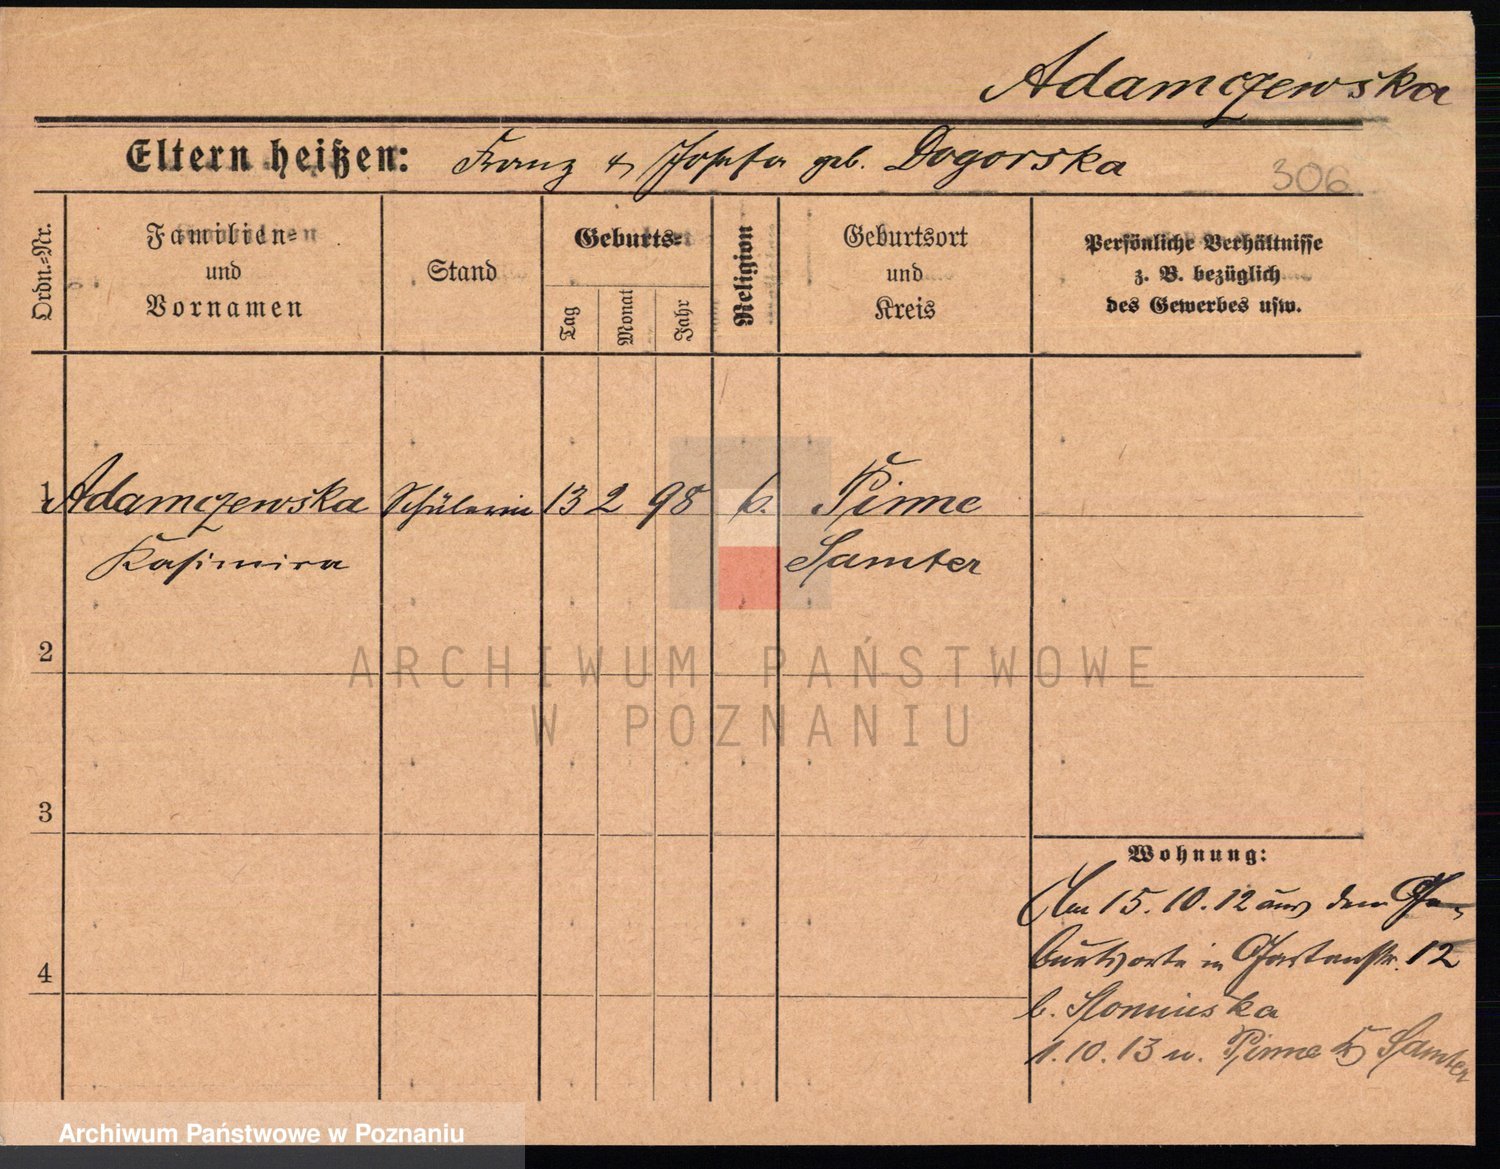 Adamczewska
Eltern heißen: Franz & Josefa geb. Dogorska
306
Ordn.=Nr.
Familien=
und
Vornamen
Stand
Geburts=
Tag
Monat
Jahr
Religion
Geburtsort
und
Kreis
Persönliche Verhältnisse
z. B. bezüglich
des Gewerbes usw.
1 Adamczewska Schülerin 13 2 98 k. Pinne
Kasimira Samter
2
ARCHIWUM PAŃSTWOWE
W POZNANIU
3
Wohnung:
Am 15.10.12 aus dem Ge-
burtsorte in Gartenstr. 12
4
b. Slominska
1.10.13 n. Pinne Samter
Archiwum Państwowe w Poznaniu